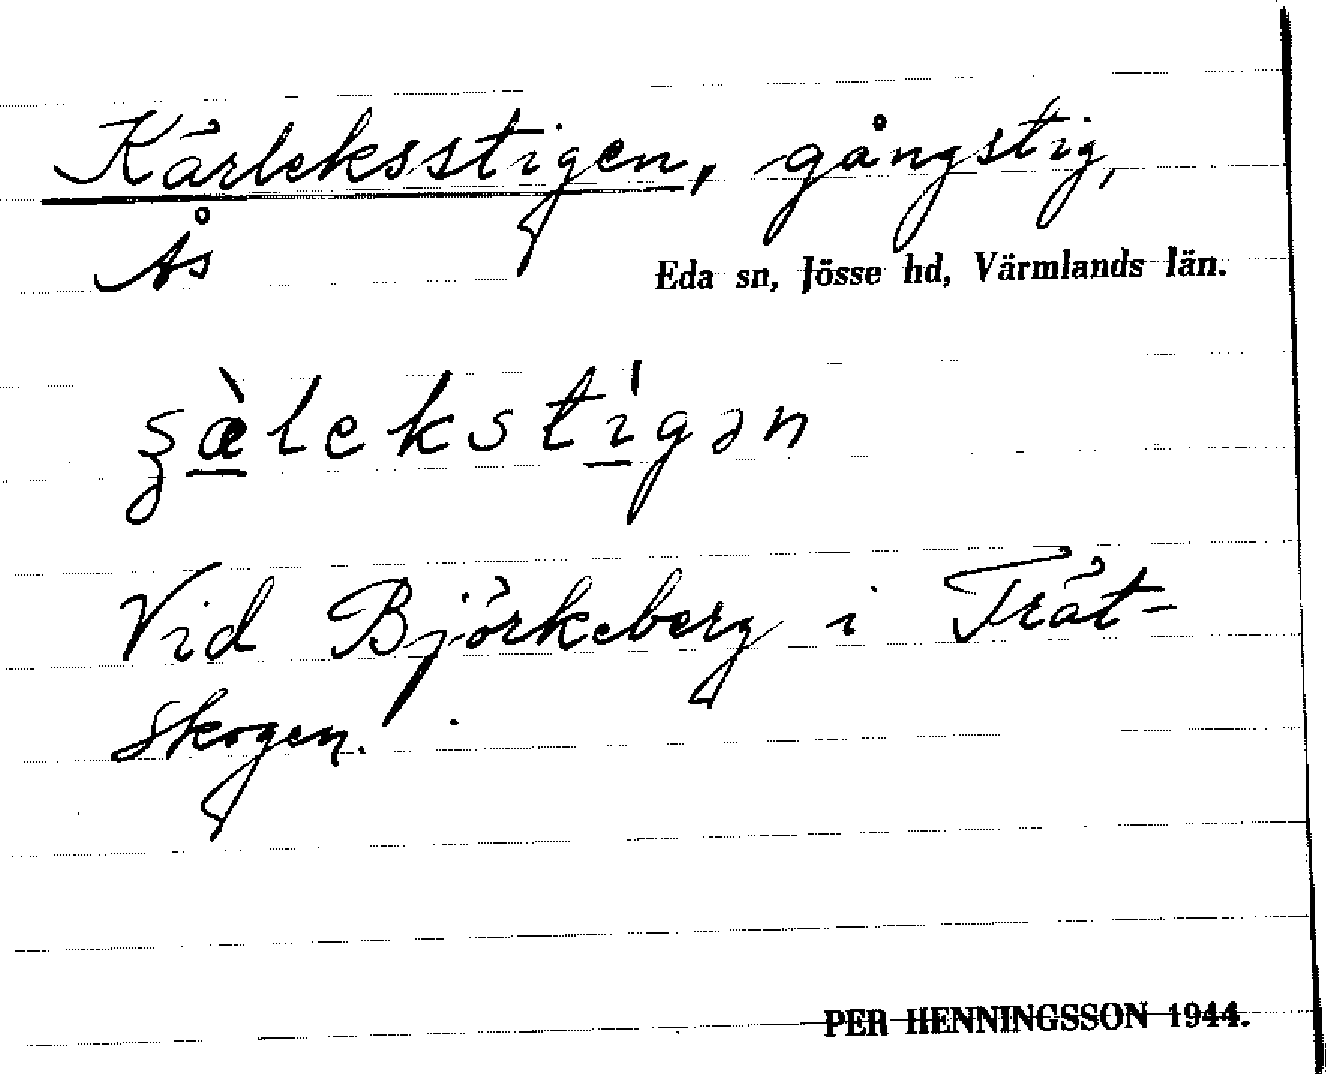 Kärleksstigen, gångstig,
Ås
Eda sn, Jösse hd, Värmlands län.
ʂæ̀lekstìgən
Vid Björkeberg i Trät-
skogen.
PER HENNINGSSON 1944.